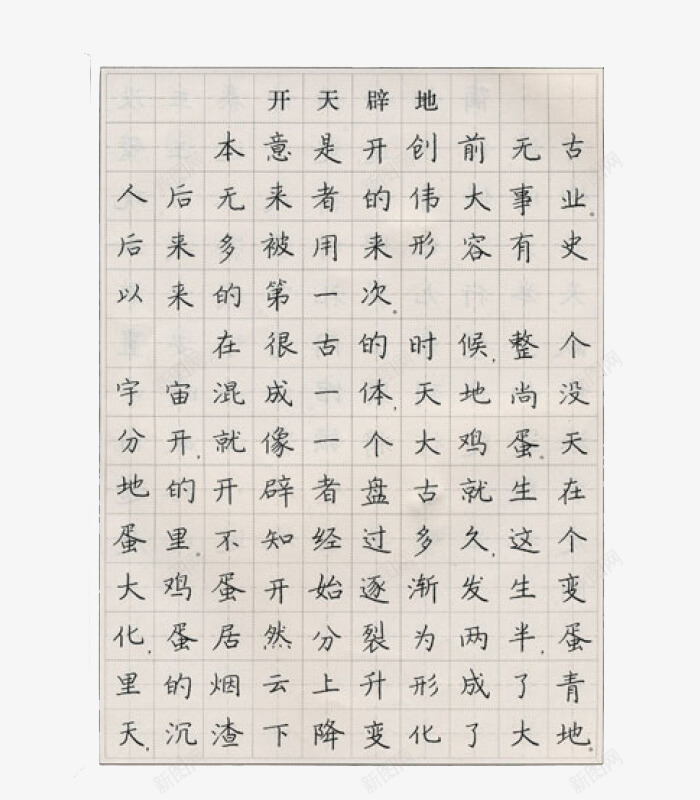 开天辟地
本意是开创前无古
人后无来者的伟大事业.
后来多被用来形容有史
以来的第一次.
在很古的时候,整个
宇宙混成一体,天地尚没
分开,就像一个大鸡蛋.天
地的开辟者盘古就生在
蛋里.不知经过多久,这个
大鸡蛋开始逐渐发生变
化,蛋居然分裂为两半,蛋
里的烟云上升形成了青
天,沉渣下降变化了大地.